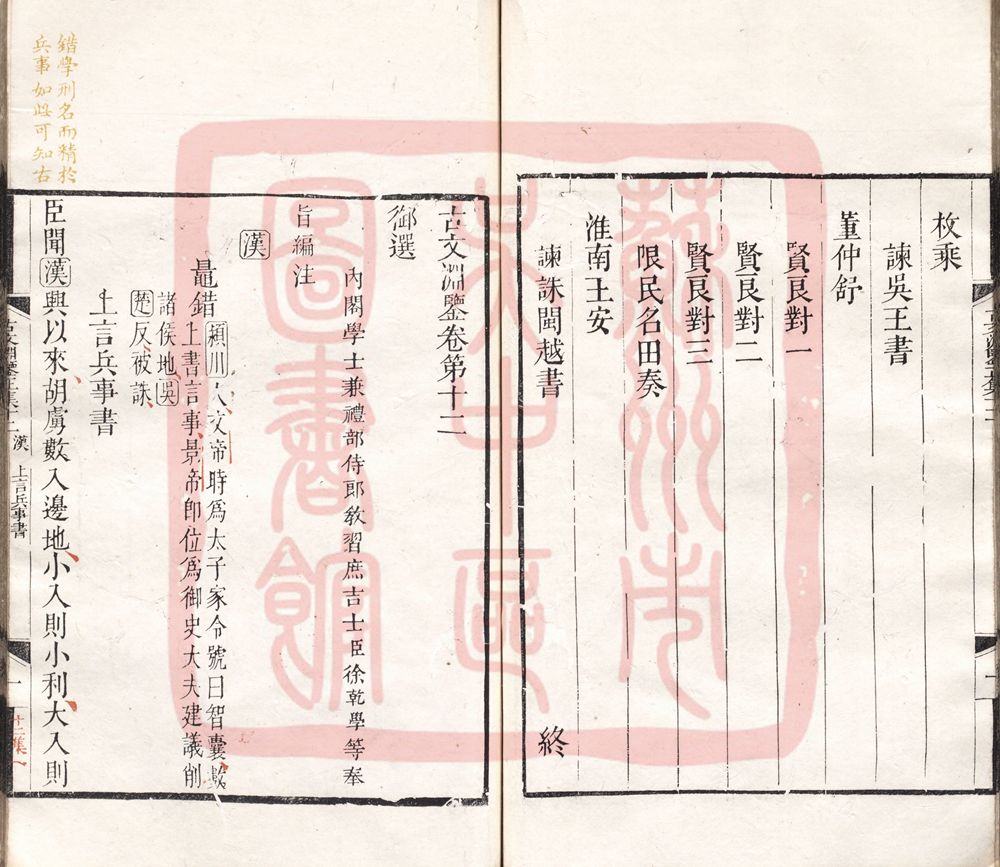 枚乘
諫吳王書
董仲舒
賢良對一
賢良對二
賢良對三
限民名田奏
淮南王安
諫誅閩越書
終
古文淵鑒卷第十二
御選
內閣學士兼禮部侍郎教習庶吉士臣徐乾學等奉
旨編注
漢
鼂錯
潁川人文帝時爲太子家令號曰智囊數
上書言事景帝即位爲御史大夫建議削
諸侯地吳
楚反被誅
上言兵事書
臣聞漢興以來胡虜數入邊地小入則小利大入則
錯學刑名而精於
兵事如此可知古
漢
上言兵事書
一
十二集一
蘇州市
吴中區
圖書館